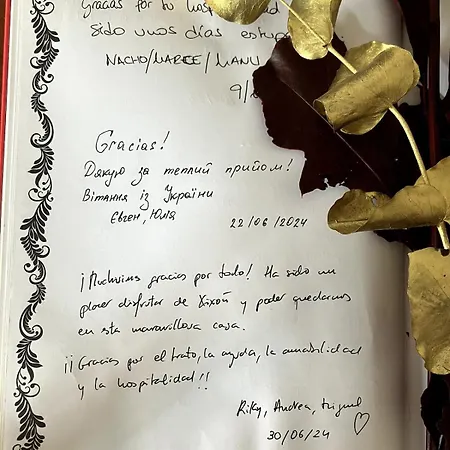 Gracias por tu
sido unos días
NACHO/MARCE/MANU
9/
Gracias!
Дякую за теплий прийом!
Вітання із України
Євген, Юлія
22/06/2024
¡Muchísimas gracias por todo! Ha sido un
placer disfrutar de Xixón y poder quedarnos
en esta maravillosa casa.
¡¡Gracias por el trato, la ayuda, la amabilidad
y la hospitalidad!!
Riky, Andrea, Miguel
30/06/24